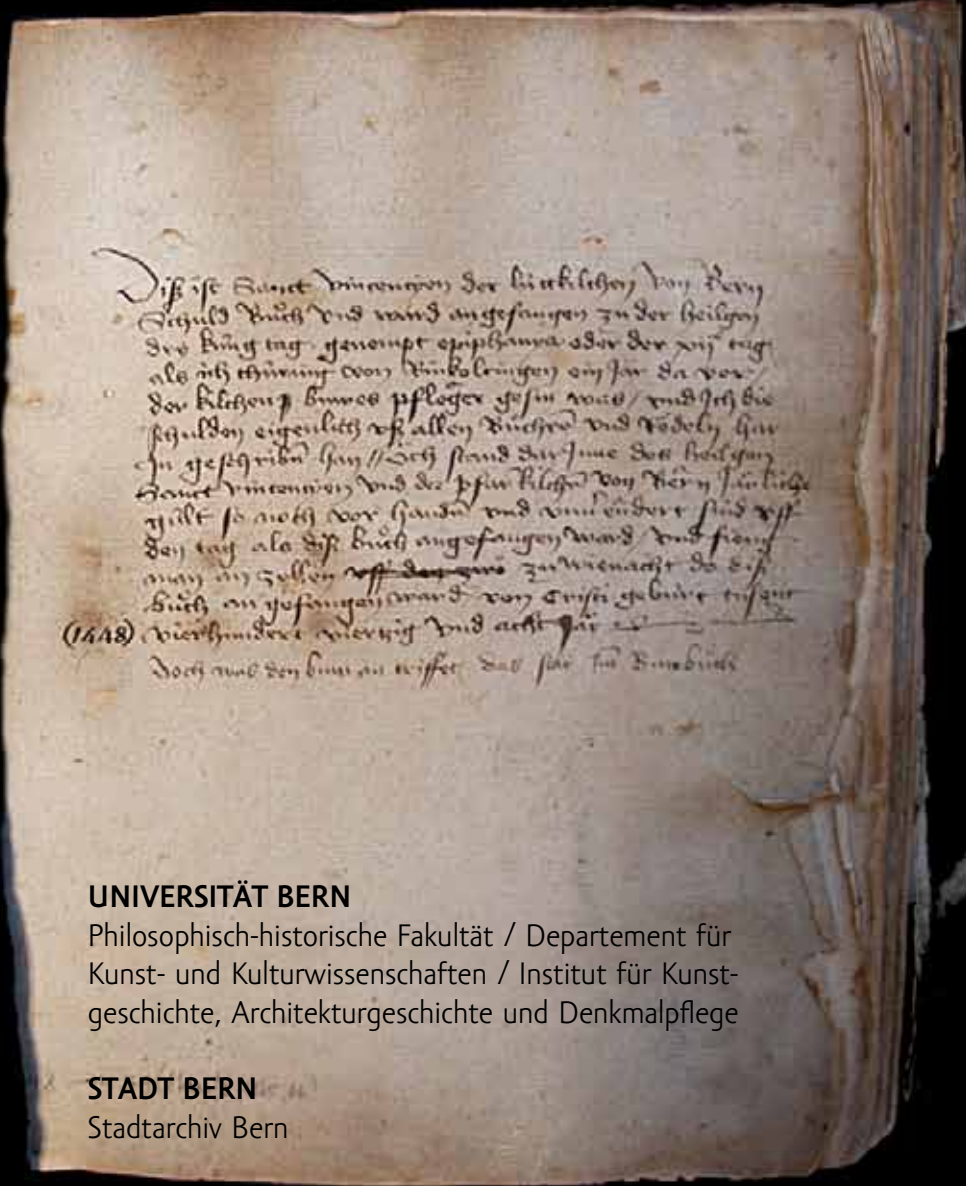 Diß ist Sanct vincencyen der lütkilchen von Bern
Schuld Buͦch vnd ward angefangen zu der heilgen
drÿ kung tag genempt epiphania oder der xij tag
als ich thüring von Ringkoltingen ein Jar da vor /
der kilchen buwes pfleger gesin was / vnd Ich die
schulden eigenlich vß allen Büchern vnd Rödeln har
In geschriben han // Och stand dar Inne des heilgen
Sanct vincencyen vnd der pfarkilchen von Bern Järliche
gült so noch vor handen vnd sind vff
den tag als diß buͦch angefangen ward / vnd fieng
man an zellen zu wienacht do diß
buͦch an gefangen ward von Cristi geburt tusent
(1448) vierhundert viertzig vnd acht Jar
Doch was den buw an triffet das stat Im Buwbuͦch
UNIVERSITÄT BERN
Philosophisch-historische Fakultät / Departement für
Kunst- und Kulturwissenschaften / Institut für Kunst-
geschichte, Architekturgeschichte und Denkmalpflege
STADT BERN
Stadtarchiv Bern